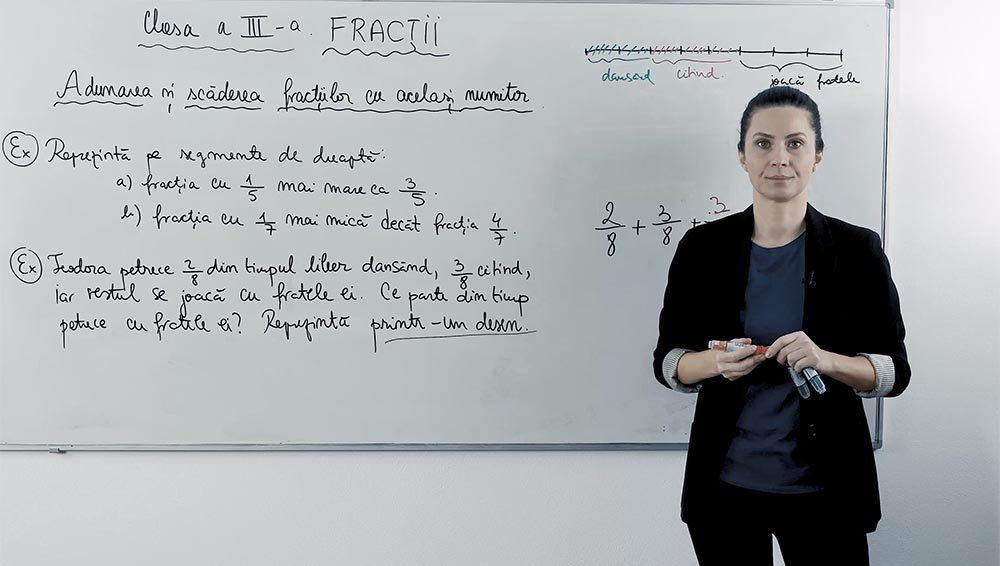 Clasa a III-a. FRACȚII
Adunarea și scăderea fracțiilor cu același numitor.
Ex Reprezintă pe segmente de dreaptă:
a) fracția cu 1/5 mai mare ca 3/5.
b) fracția cu 1/7 mai mică decât fracția 4/7.
Ex Teodora petrece 2/8 din timpul liber dansând, 3/8 citind,
iar restul se joacă cu fratele ei. Ce parte din timp
petrece cu fratele ei? Reprezintă printr-un desen.
dansând citind. joacă fratele
2/8 + 3/8 + 3